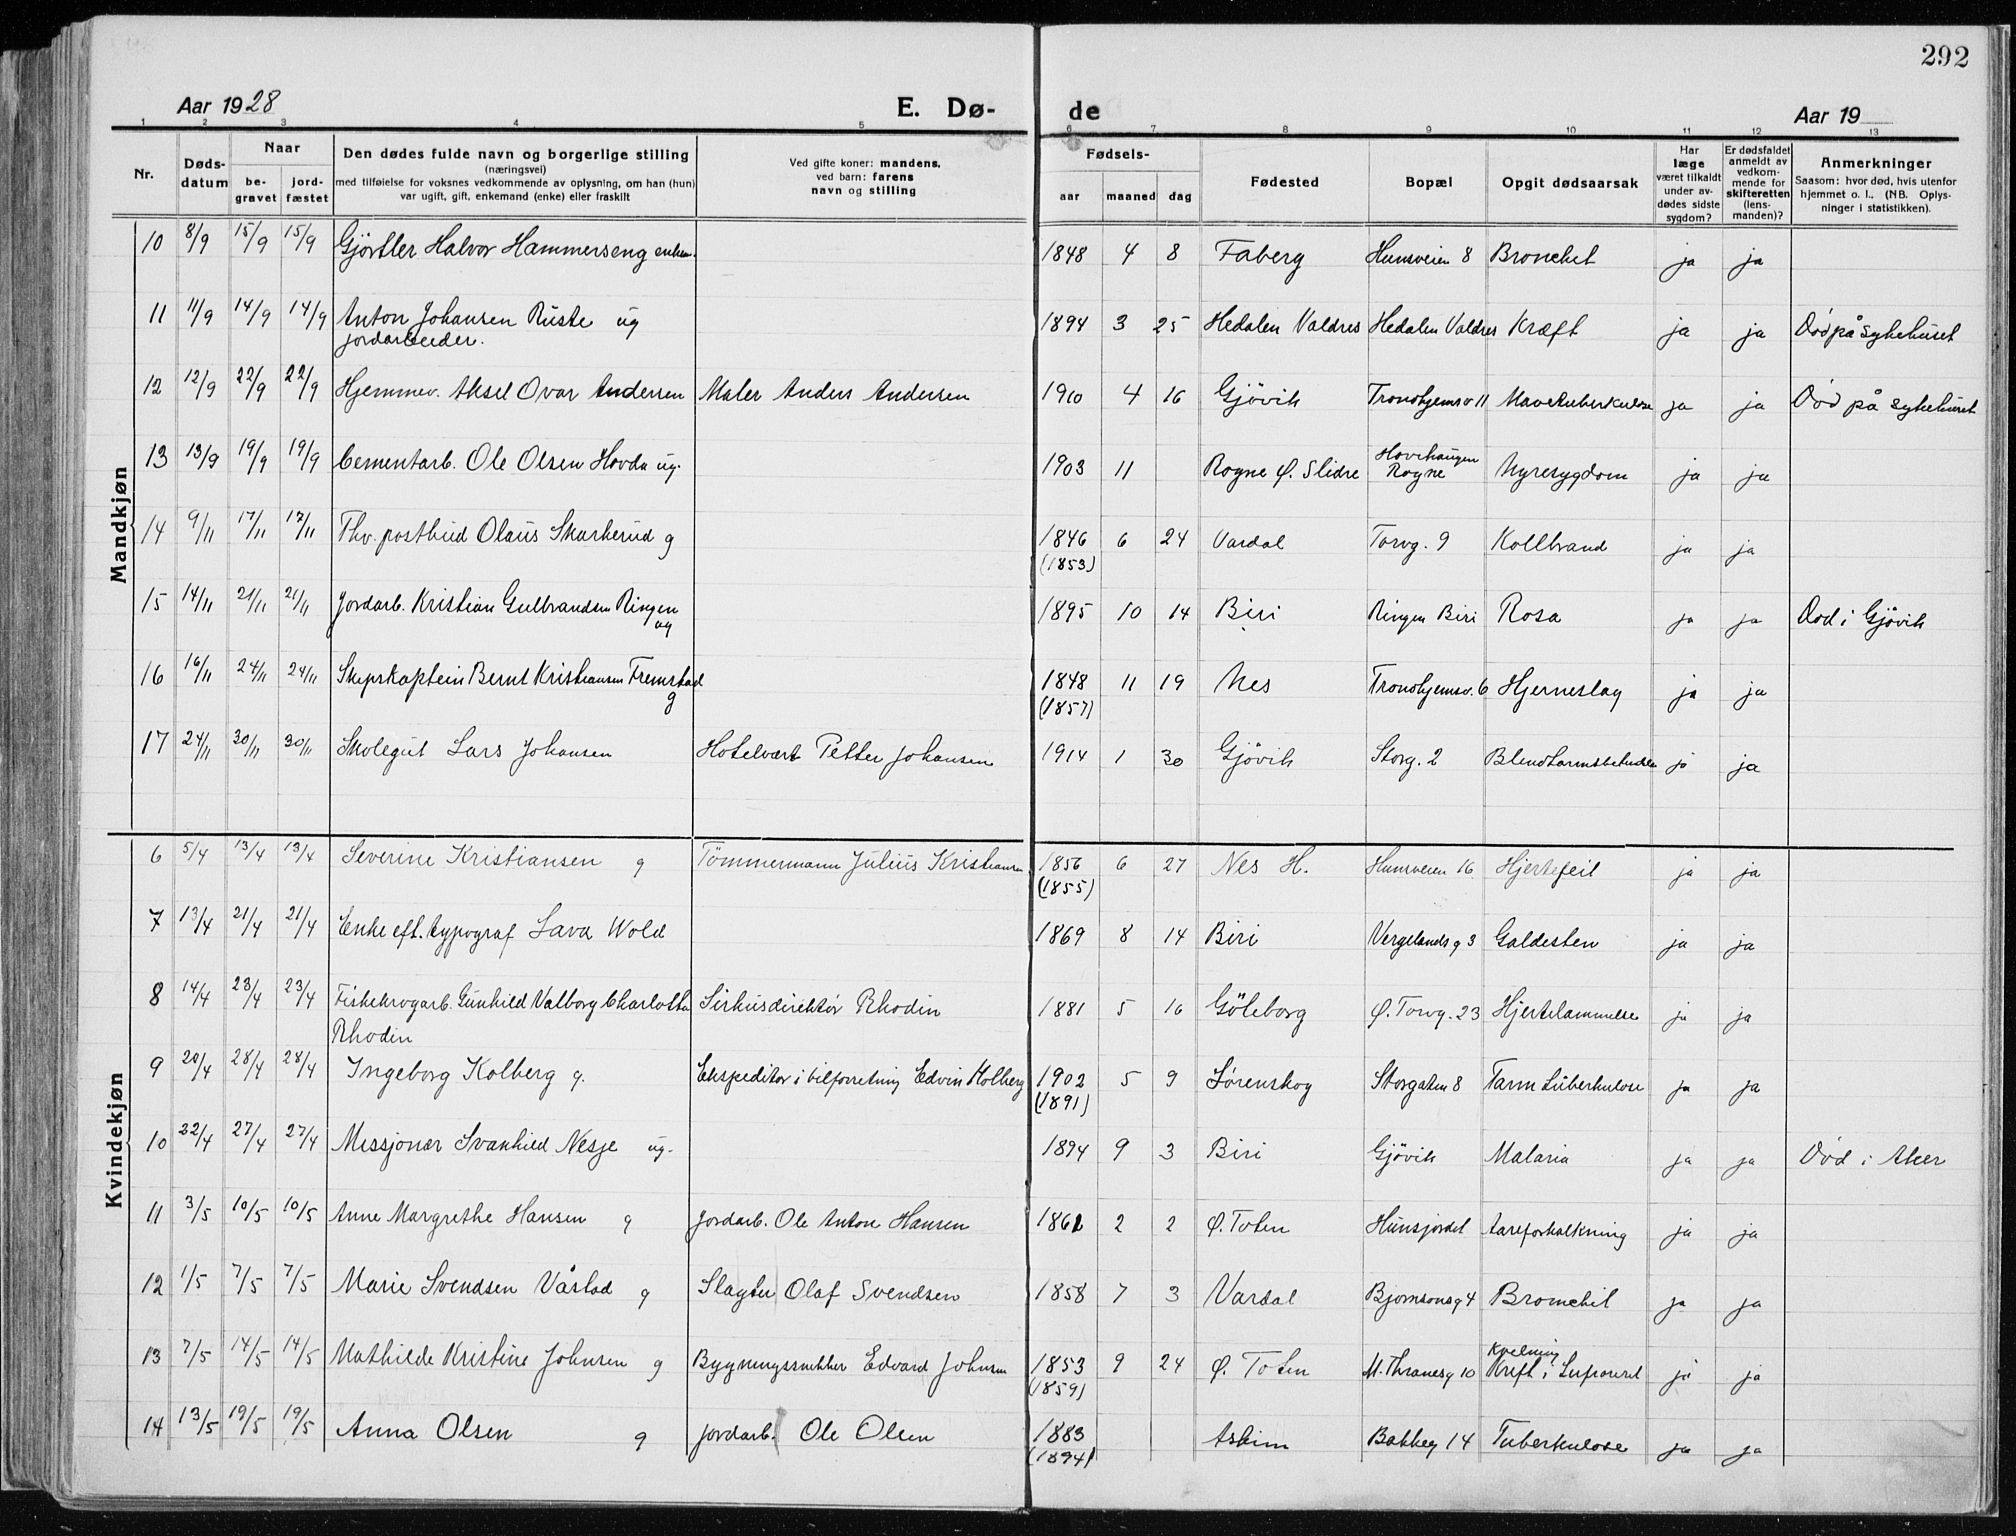 292
Aar 1928 E. Dø- de Aar 19
1 2 3 4 5 6 7 8 9 10 11 12 13
Nr. Døds-datum Naar be-gravet jord-fæstet Den dødes fulde navn og borgerlige stilling (næringsvei) med tilføielse for voksnes vedkommende av oplysning, om han (hun) var ugift, gift, enkemand (enke) eller fraskilt Ved gifte koner: mandens, ved barn: farens navn og stilling Fødsels- aar maaned dag Fødested Bopæl Opgit dødsaarsak Har læge været tilkaldt under av-dødes sidste sygdom? Er dødsfaldet anmeldt av vedkom-mende for skifteretten (lens-manden)? Anmerkninger Saasom: hvor død, hvis utenfor hjemmet o. l., (NB. Oplys-ninger i statistikken).
Mandkjøn
10 8/9 15/9 15/9 Gjørtler Halvor Hammerseng enkem. 1848 4 8 Faberg Hunsveien 8 Bronchit ja ja
11 11/9 14/9 14/9 Anton Johansen Ruste ug 1894 3 25 Hedalen Valdres Hedalen Valdres Kræft ja ja Död på sykehuset
jordarbeider.
12 12/9 22/9 22/9 Hjemmev. Aksel Ovar Andersen Maler Anders Andersen 1910 4 16 Gjövik Trondhjemsv 11 Mavetuberkulose ja ja Död på sykehuset
13 13/9 19/9 19/9 Cementarb. Ole Olsen Hovda ug. 1903 11 Rogne Ø. Slidre Hovihaugen Rogne Nyresygdom ja ja
14 9/11 17/11 17/11 Fhv. postbud Olaus Skarkerud g 1846 6 24 Vardal Torvg. 9 Kollbrand ja ja
(1853)
15 14/11 21/11 21/11 Jordarb. Kristian Gulbrandsen Ringen ug 1895 10 14 Biri Ringen Biri Rosa ja ja Död i Gjövik
16 16/11 24/11 24/11 Skipskaptein Bernt Kristiansen Fremstad g 1848 11 19 Nes Trondhjemsv. 6 Hjerneslag ja ja
(1857)
17 24/11 30/11 30/11 Skolegut Lars Johansen Hotelvært Petter Johansen 1914 1 30 Gjövik Storg. 2 Blendtarmsbetendelse ja ja
Kvindekjøn
6 5/4 13/4 13/4 Severine Kristiansen g Tömmermann Julius Kristiansen 1856 6 27 Nes H. Hunsveien 16 Hjertefeil ja ja
(1855)
7 13/4 21/4 21/4 Enke eft. typograf Lava Wold 1869 8 14 Biri Vergelandsg 3 Galdesten ja ja
8 14/4 23/4 23/4 Fiskekrogarb. Gunhild Valborg Charlotta Sirkusdirektör Rhodin 1881 5 16 Göteborg Ø. Torvg. 23 Hjertelammelse ja ja
Rhodin
9 20/4 28/4 28/4 Ingeborg Kolberg g. Ekspeditor i bilforretning Edvin Kolberg 1902 5 9 Lörenskog Storgaten 8 Tarm tuberkulose ja ja
(1891)
10 22/4 27/4 27/4 Missjonær Svanhild Nesje ug. 1894 9 3 Biri Gjövik Malaria ja ja Död i Aker
11 3/5 10/5 10/5 Anne Margrethe Hansen g Jordarb. Ole Anton Hansen 1861 2 2 Ø. Toten Hunsjordet Aareforkalkning ja ja
12 1/5 7/5 7/5 Marie Svendsen Vårstad g Slagter Olaf Svendsen 1858 7 3 Vardal Bjørnsonsg 4 Bronchit ja ja
13 7/5 14/5 14/5 Mathilde Kristine Johnsen g Bygningssnekker Edvard Johnsen 1853 9 24 Ø. Toten M. Thranesg 10 Kvelning Kreft i Luftröret ja ja
(1859)
14 13/5 19/5 19/5 Anna Olsen g Jordarb. Ole Olsen 1883 Askim Bakkeg 14 Tuberkulose ja ja
(1894)